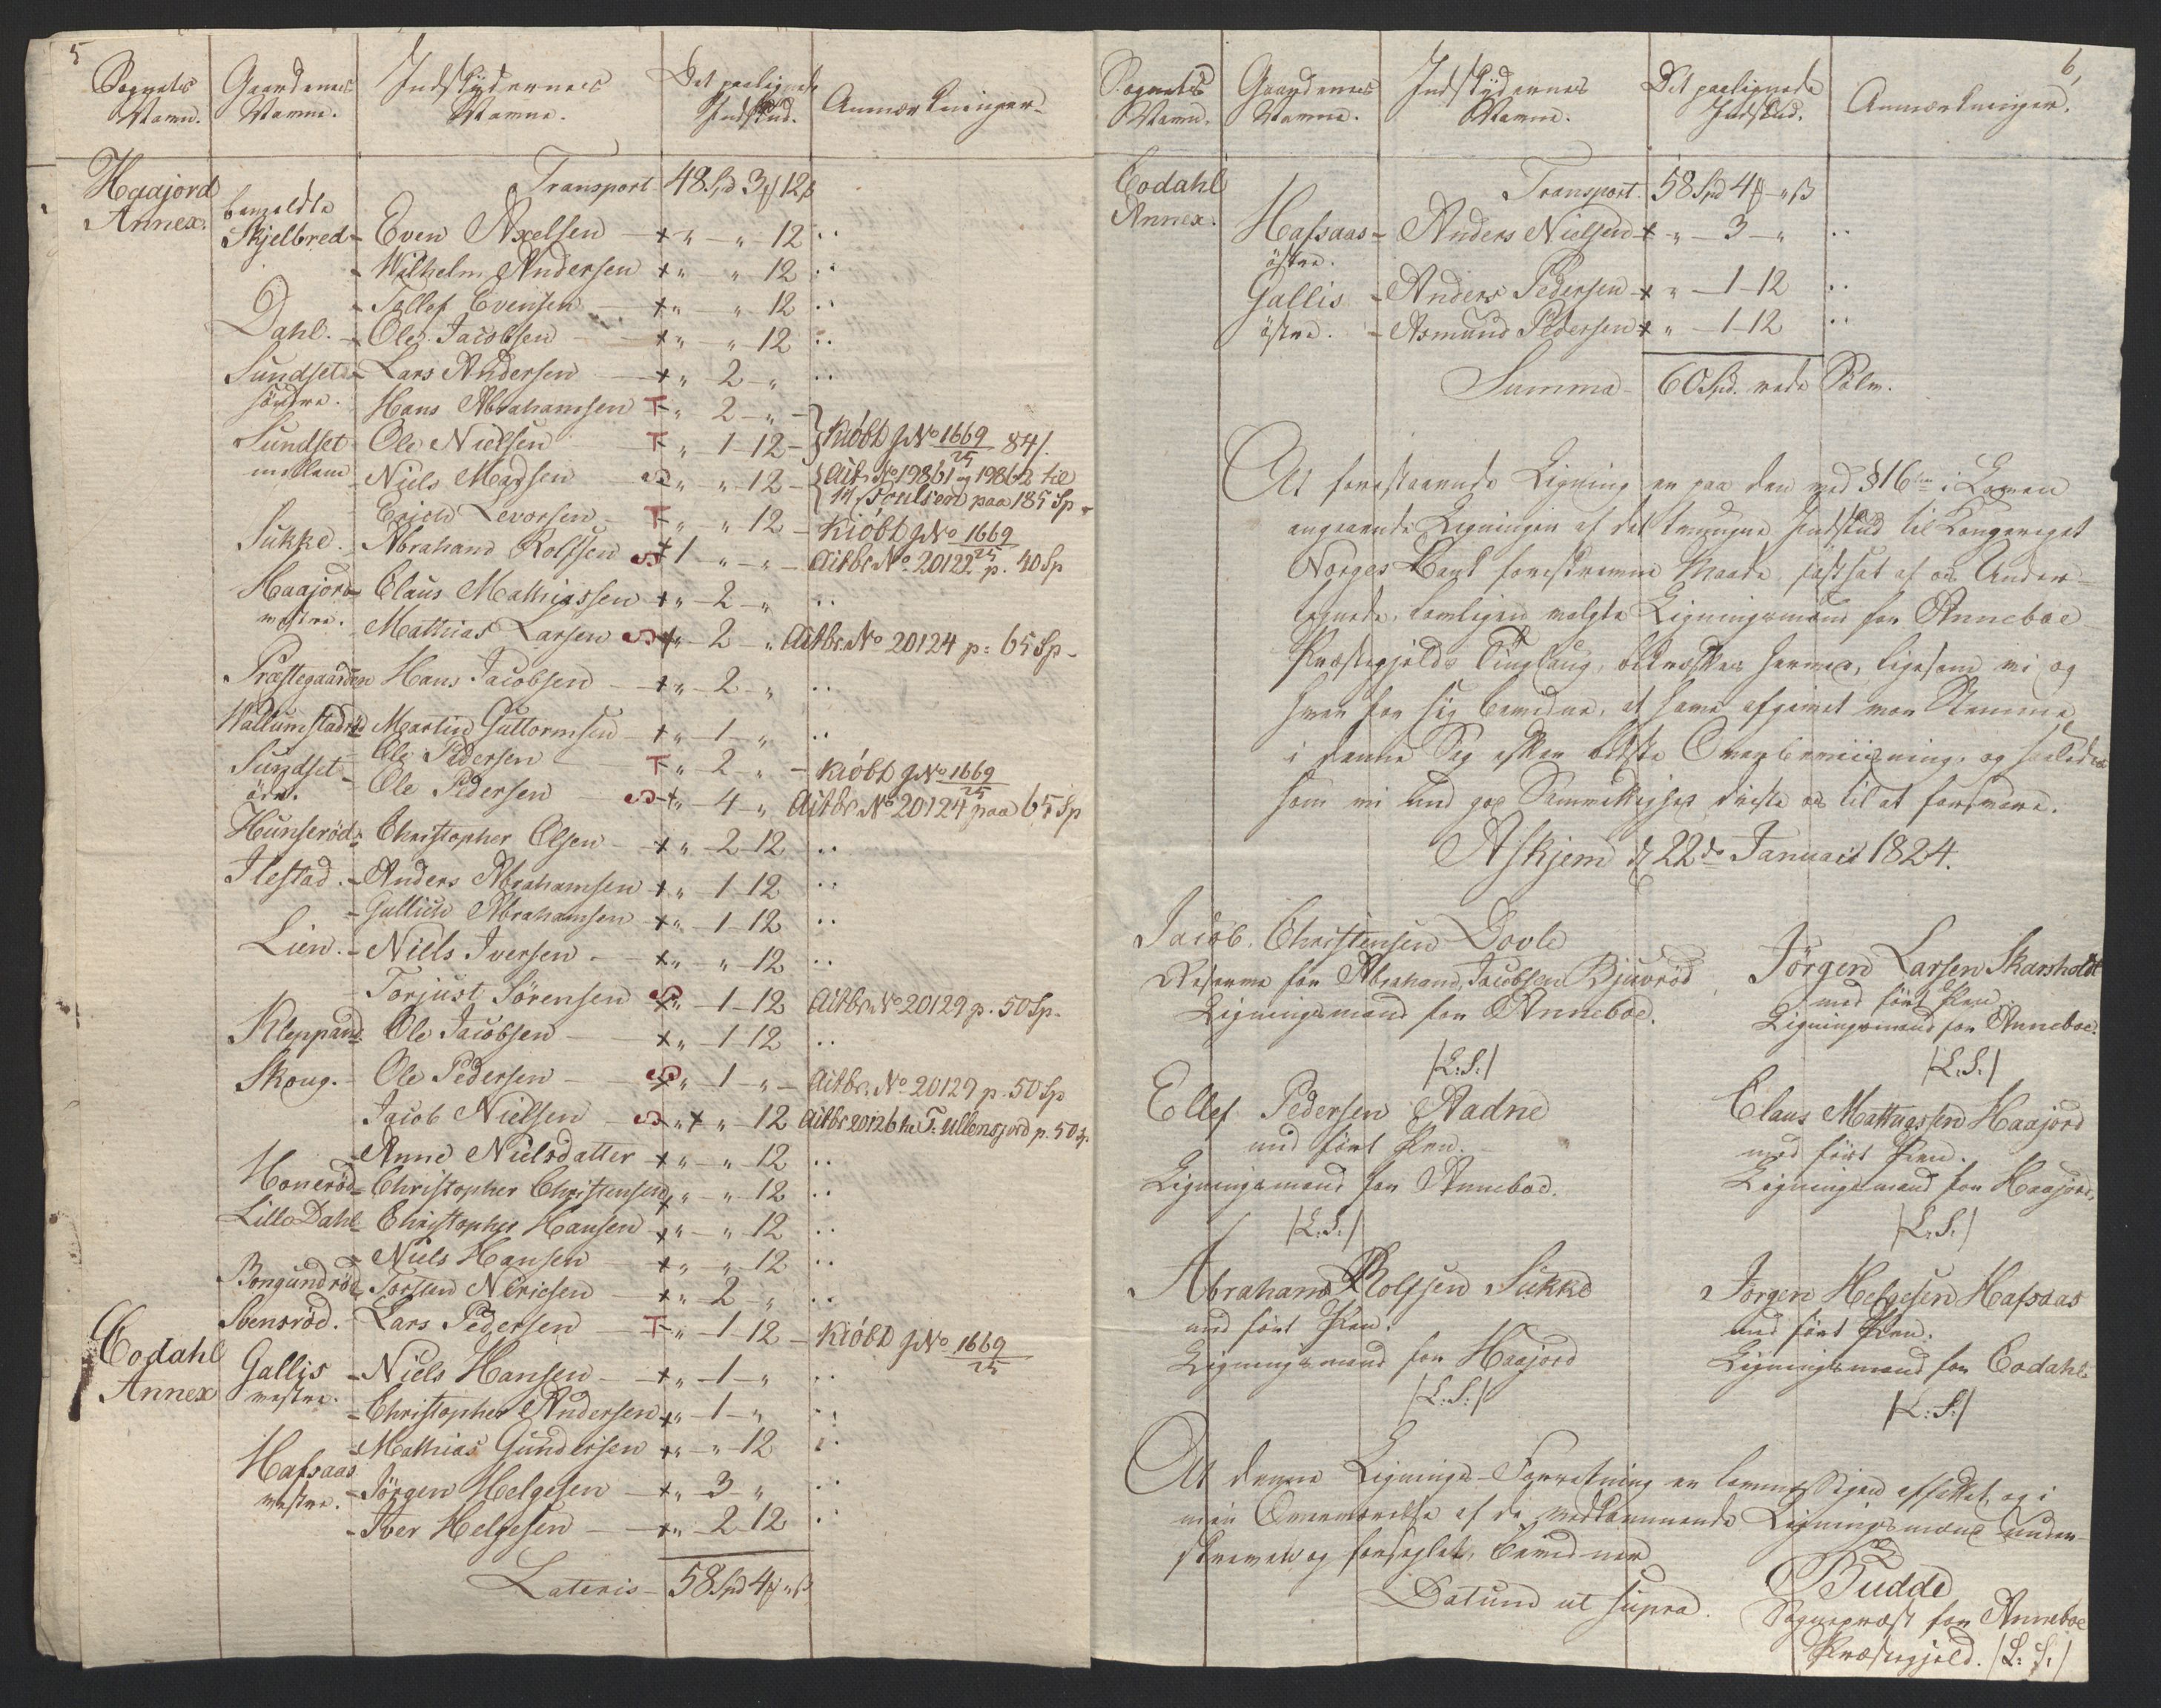 5
Sognets Navn. Gaardenes Navne. Indskydernes Navne. Det paalignede Indskud. Anmærkninger.
Haajord Annex. Transport 48 Spd 3 ƒ 12 ß
bemeldte Skjelbred - Even Axelsen - + " - " 12 ..
- Wilhelm Andersen + " - " 12 ..
- Tollef Evensen - + " - " 12 ..
Dahl. - Ole Jacobsen - + " " 12 ..
Sundset søndre. - Lars Andersen - + " 2 - " ..
Hans Abrahamsen T " 2 - " -
Sundset mellem Ole Nielsen - T " 1 - 12 - } Kiöbt J No 1669/25 84/.
- Niels Madsen " " 12 - { Aitb. No 19861 og 19862 til
{ M Poulsen paa 185 Sp.
Erich Levorsen - T " " 12 - Kiöbt J No 1669/25
Sukke. - Abraham Rolfsen + 1 " - " - Aitbr No 20122 p. 40 Sp
Haajord vestre. - Claus Mathiassen + " - 2 - " ..
Mathias Larsen + " - 2 - " Aitbr. No 20124 p: 65 Sp -
Præstegaarden Hans Jacobsen - + " - 2 - " ..
Wallumstadrød Martin Guttormsen - + " - 1 - " ..
Sundset øvre. - Ole Pedersen T " 2 - " - Kiöbt J No 1669/25
- Ole Pedersen - + " 4 - " Aitbr. No 20124 paa 65 Sp
Hunserød - Christopher Olsen - + " - 2 - 12 ..
Ilestad. - Anders Abrahamsen + " - 1 12 ..
- Gullich Abrahamsen + " - 1 - 12 ..
Lien. - Niels Iversen - + " - " - 12 ..
Torjust Sörensen + " - 1 - 12 Aitbr No 20129 p. 50 Sp.
Kleppan - Ole Jacobsen - + " - 1 12 ..
Skoug. - Ole Pedersen - + " - 1 - " - Aitbr. No 20129 p. 50 Sp
Jacob Nielsen - " + " - 12 Aitbr 20126 til T. Ullensjord p. 50 Sp.
- Anne Nielsdatter + " - " 12 ..
Honerød - Christopher Christensen + " - " 12 ..
Lille Dahl - Christopher Hansen + " - " 12 ..
- Niels Hansen - + " - " 12 ..
Bongundrød - Torsten N Ericsen - + " - 2 - " ..
Svensrød. - Lars Pedersen - T " - 1 - 12 - Kiöbt J No 1669/25
Eodahl Annex Gallis vestre. - Niels Hansen - + " - 1 - " ..
- Christopher Andersen + " - 1 - " ..
- Mathias Gundersen + " - " 12 ..
Hafsaas vestre. - Jörgen Helgesen - + " - 3 - " ..
- Iver Helgesen - + " - 2 12 ..
Lateris - 58 Spd 4 ƒ " ß
6,
Sognets Navn. Gaardenes Navne. Indskydernes Navne. Det paalignede Indskud. Anmærkninger.
Eodahl Annex. Transport. 58 Spd 4 ƒ - " ß
Hafsaas østre. - Anders Nielsen + " - 3 - " ..
Gallis østre. - Anders Pedersen + " - 1 - 12 ..
- Asmund Pedersen + " - 1 - 12 ..
Summa - 60 Spd. rede Sölv.
At forestaaende Ligning er paa den ved § 16 i Loven
angaaende Ligningen af det tvungne Indskud til Kongeriget
Norges Bank foreskrevne Maade fastsat af os Under-
tegnede, lovligen valgte Ligningsmænd for Anneboe
Præstegjelds Tinglaug, bekræftes herved, ligesom vi og
hver for sig bevidne, at have afgivet vor Stemme
i denne Sag efter bedste Overbeviisning, og saaledes
som vi med god Samvittighed driste os til at forsvare.
Askjem d 22de Januarii 1824.
Jacob. Christensen Dovle
Reserve for Abraham Jacobsen Bjuerød
Ligningsmand for Anneboe.
/L:S:/
Jörgen Larsen Skarsholdt
med ført Pen
Ligningsmand for Anneboe.
/L.S./
Ellef Pedersen Aadne
med ført Pen.
Ligningsmand for Anneboe.
/L:S:/
Claus Mathiassen Haajord
med ført Pen.
Ligningsmand for Haajord.
/L.S./
Abraham Rolfsen Sukke
med ført Pen.
Ligningsmand for Haajord
/L:S:/
Jörgen Helgesen Hafsaas
med ført Pen.
Ligningsmand for Eodahl.
/L:S:/
At denne Lignings-Forretning er lovmæssigen affattet, og i
min Overværelse af de vedkommende Ligningsmænd under-
skreven og forseglet, bevidner
Datum ut supra.
Budde
Sognepræst for Anneboe
Præstegjeld. /L:S:/